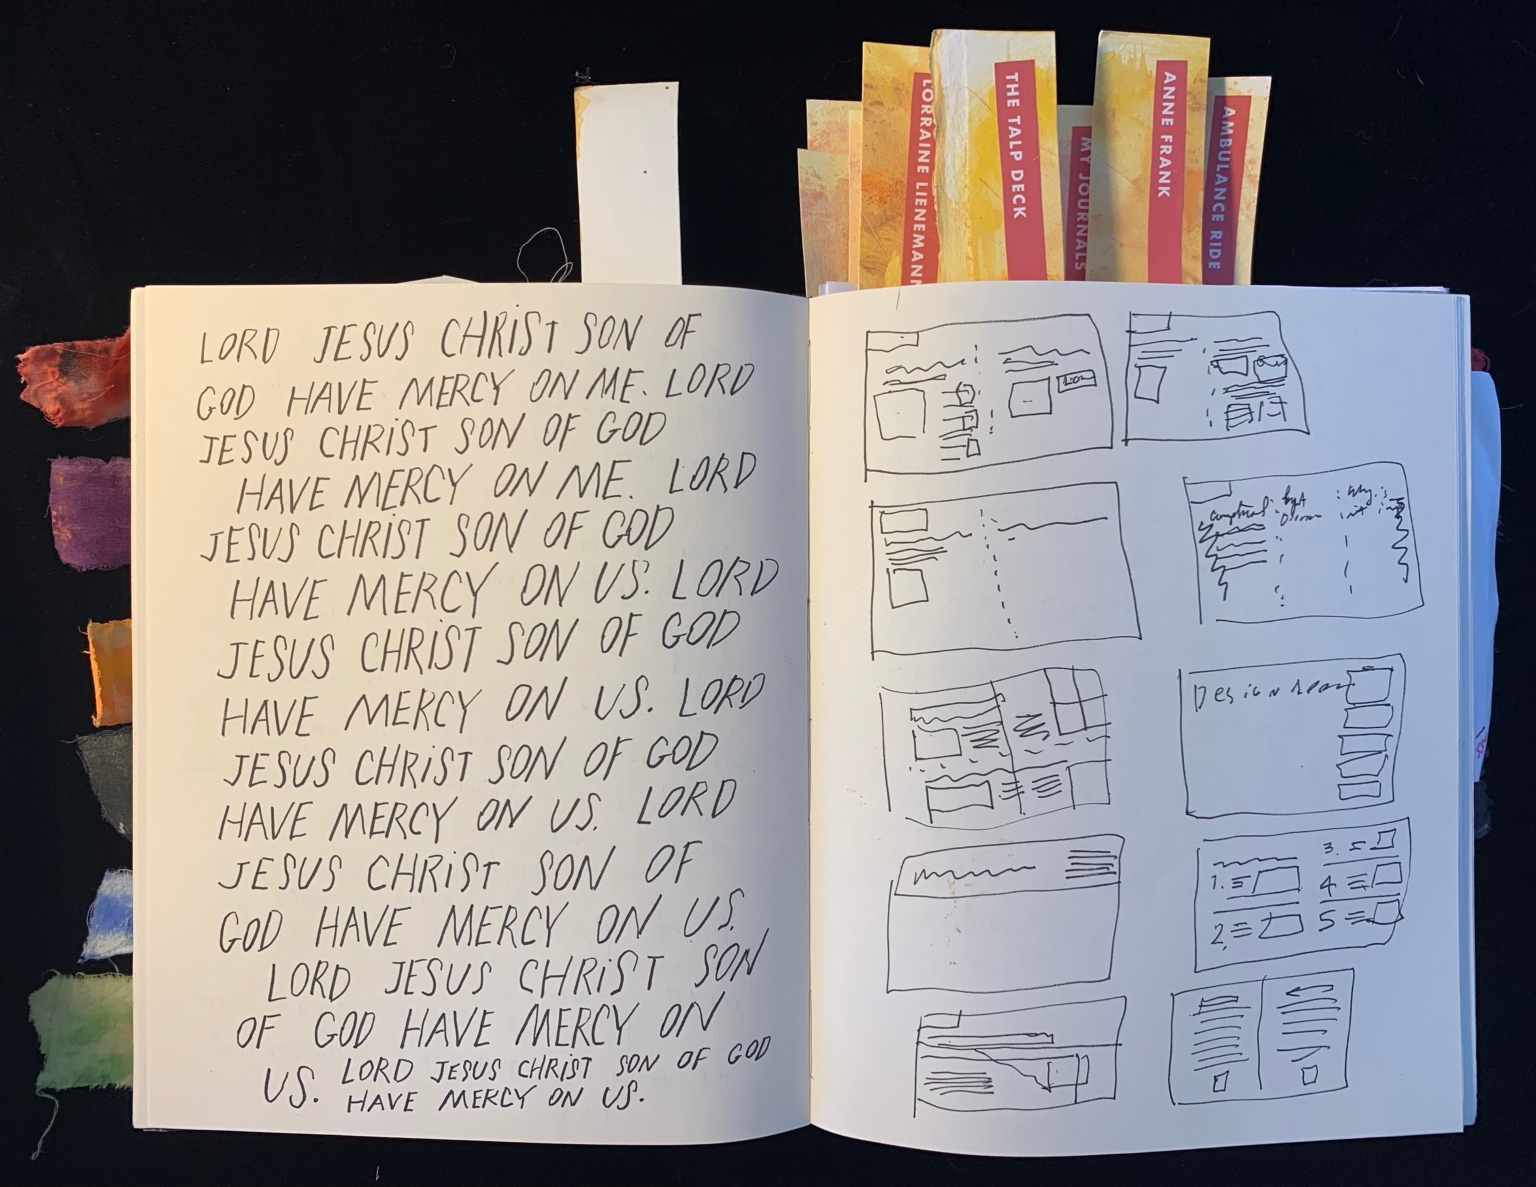 LORRAINE LIENEMANN
THE TALP DECK
MY JOURNALS
ANNE FRANK
AMBULANCE RIDE
LORD JESUS CHRIST SON OF
GOD HAVE MERCY ON ME. LORD
JESUS CHRIST SON OF GOD
HAVE MERCY ON ME. LORD
JESUS CHRIST SON OF GOD
HAVE MERCY ON US. LORD
JESUS CHRIST SON OF GOD
HAVE MERCY ON US. LORD
JESUS CHRIST SON OF GOD
HAVE MERCY ON US. LORD
JESUS CHRIST SON OF
GOD HAVE MERCY ON US.
LORD JESUS CHRIST SON
OF GOD HAVE MERCY ON
US. LORD JESUS CHRIST SON OF GOD
HAVE MERCY ON US.
DESIGN
1.
2.
3.
4
5